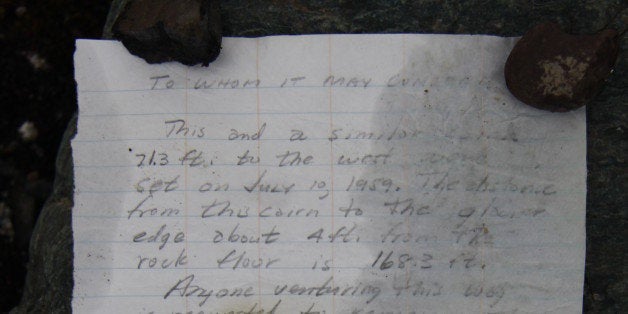 TO WHOM IT MAY CONCERN
This and a similar cairn
21.3 ft. to the west were
set on July 10, 1959. The distance
from this cairn to the glacier
edge about 4 ft. from the
rock floor is 168.3 ft.
Anyone venturing this way
is requested to